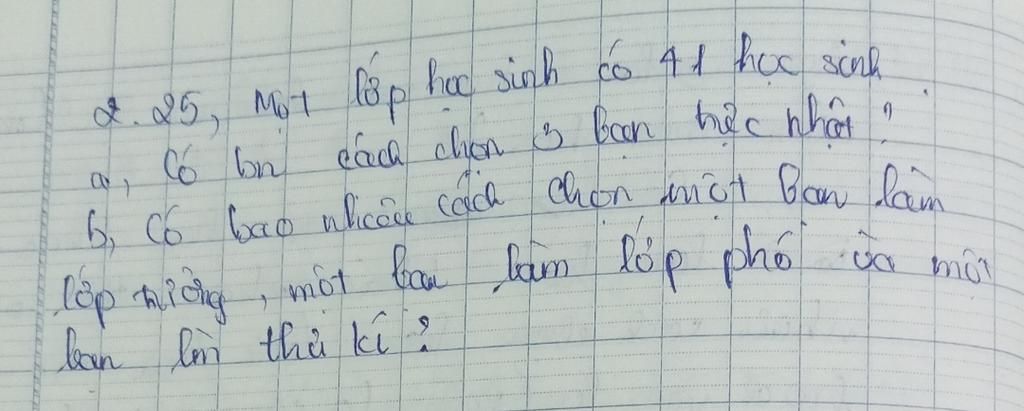 2.25, Một lớp học sinh có 41 học sinh
a, Có bn cách chọn 3 bạn trực nhật?
b, Có bao nhiêu cách chọn một bạn làm
lớp trưởng, một bạn làm lớp phó và một
bạn làm thư kí?